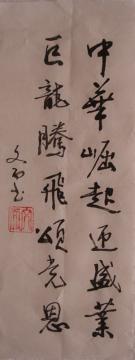 中華崛起迎盛業
巨龍騰飛頌党恩
文石书